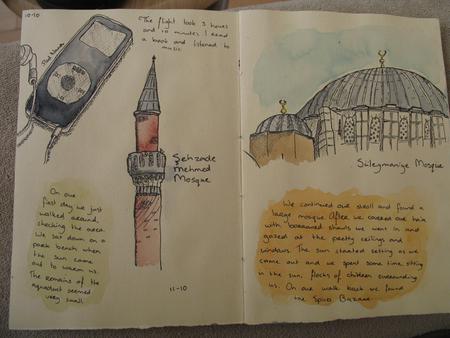 10-10
The flight took 3 hours
and 10 minutes. I read
a book and listened to
music.
Şehzade
Mehmed
Mosque
On our
first day we just
walked around,
checking the area.
We sat down on a
park bench when
the sun came
out to warm us.
The remains of the
aqueduct seemed
very small.
11-10
Süleymaniye Mosque
We continued our stroll and found a
large mosque. After we covered our hair
with borrowed shawls we went in and
gazed at the pretty ceilings and
windows. The sun started setting as we
came out and we spent some time sitting
in the sun, flocks of children surrounding
us. On our walk back we found
the Spice Bazaar.